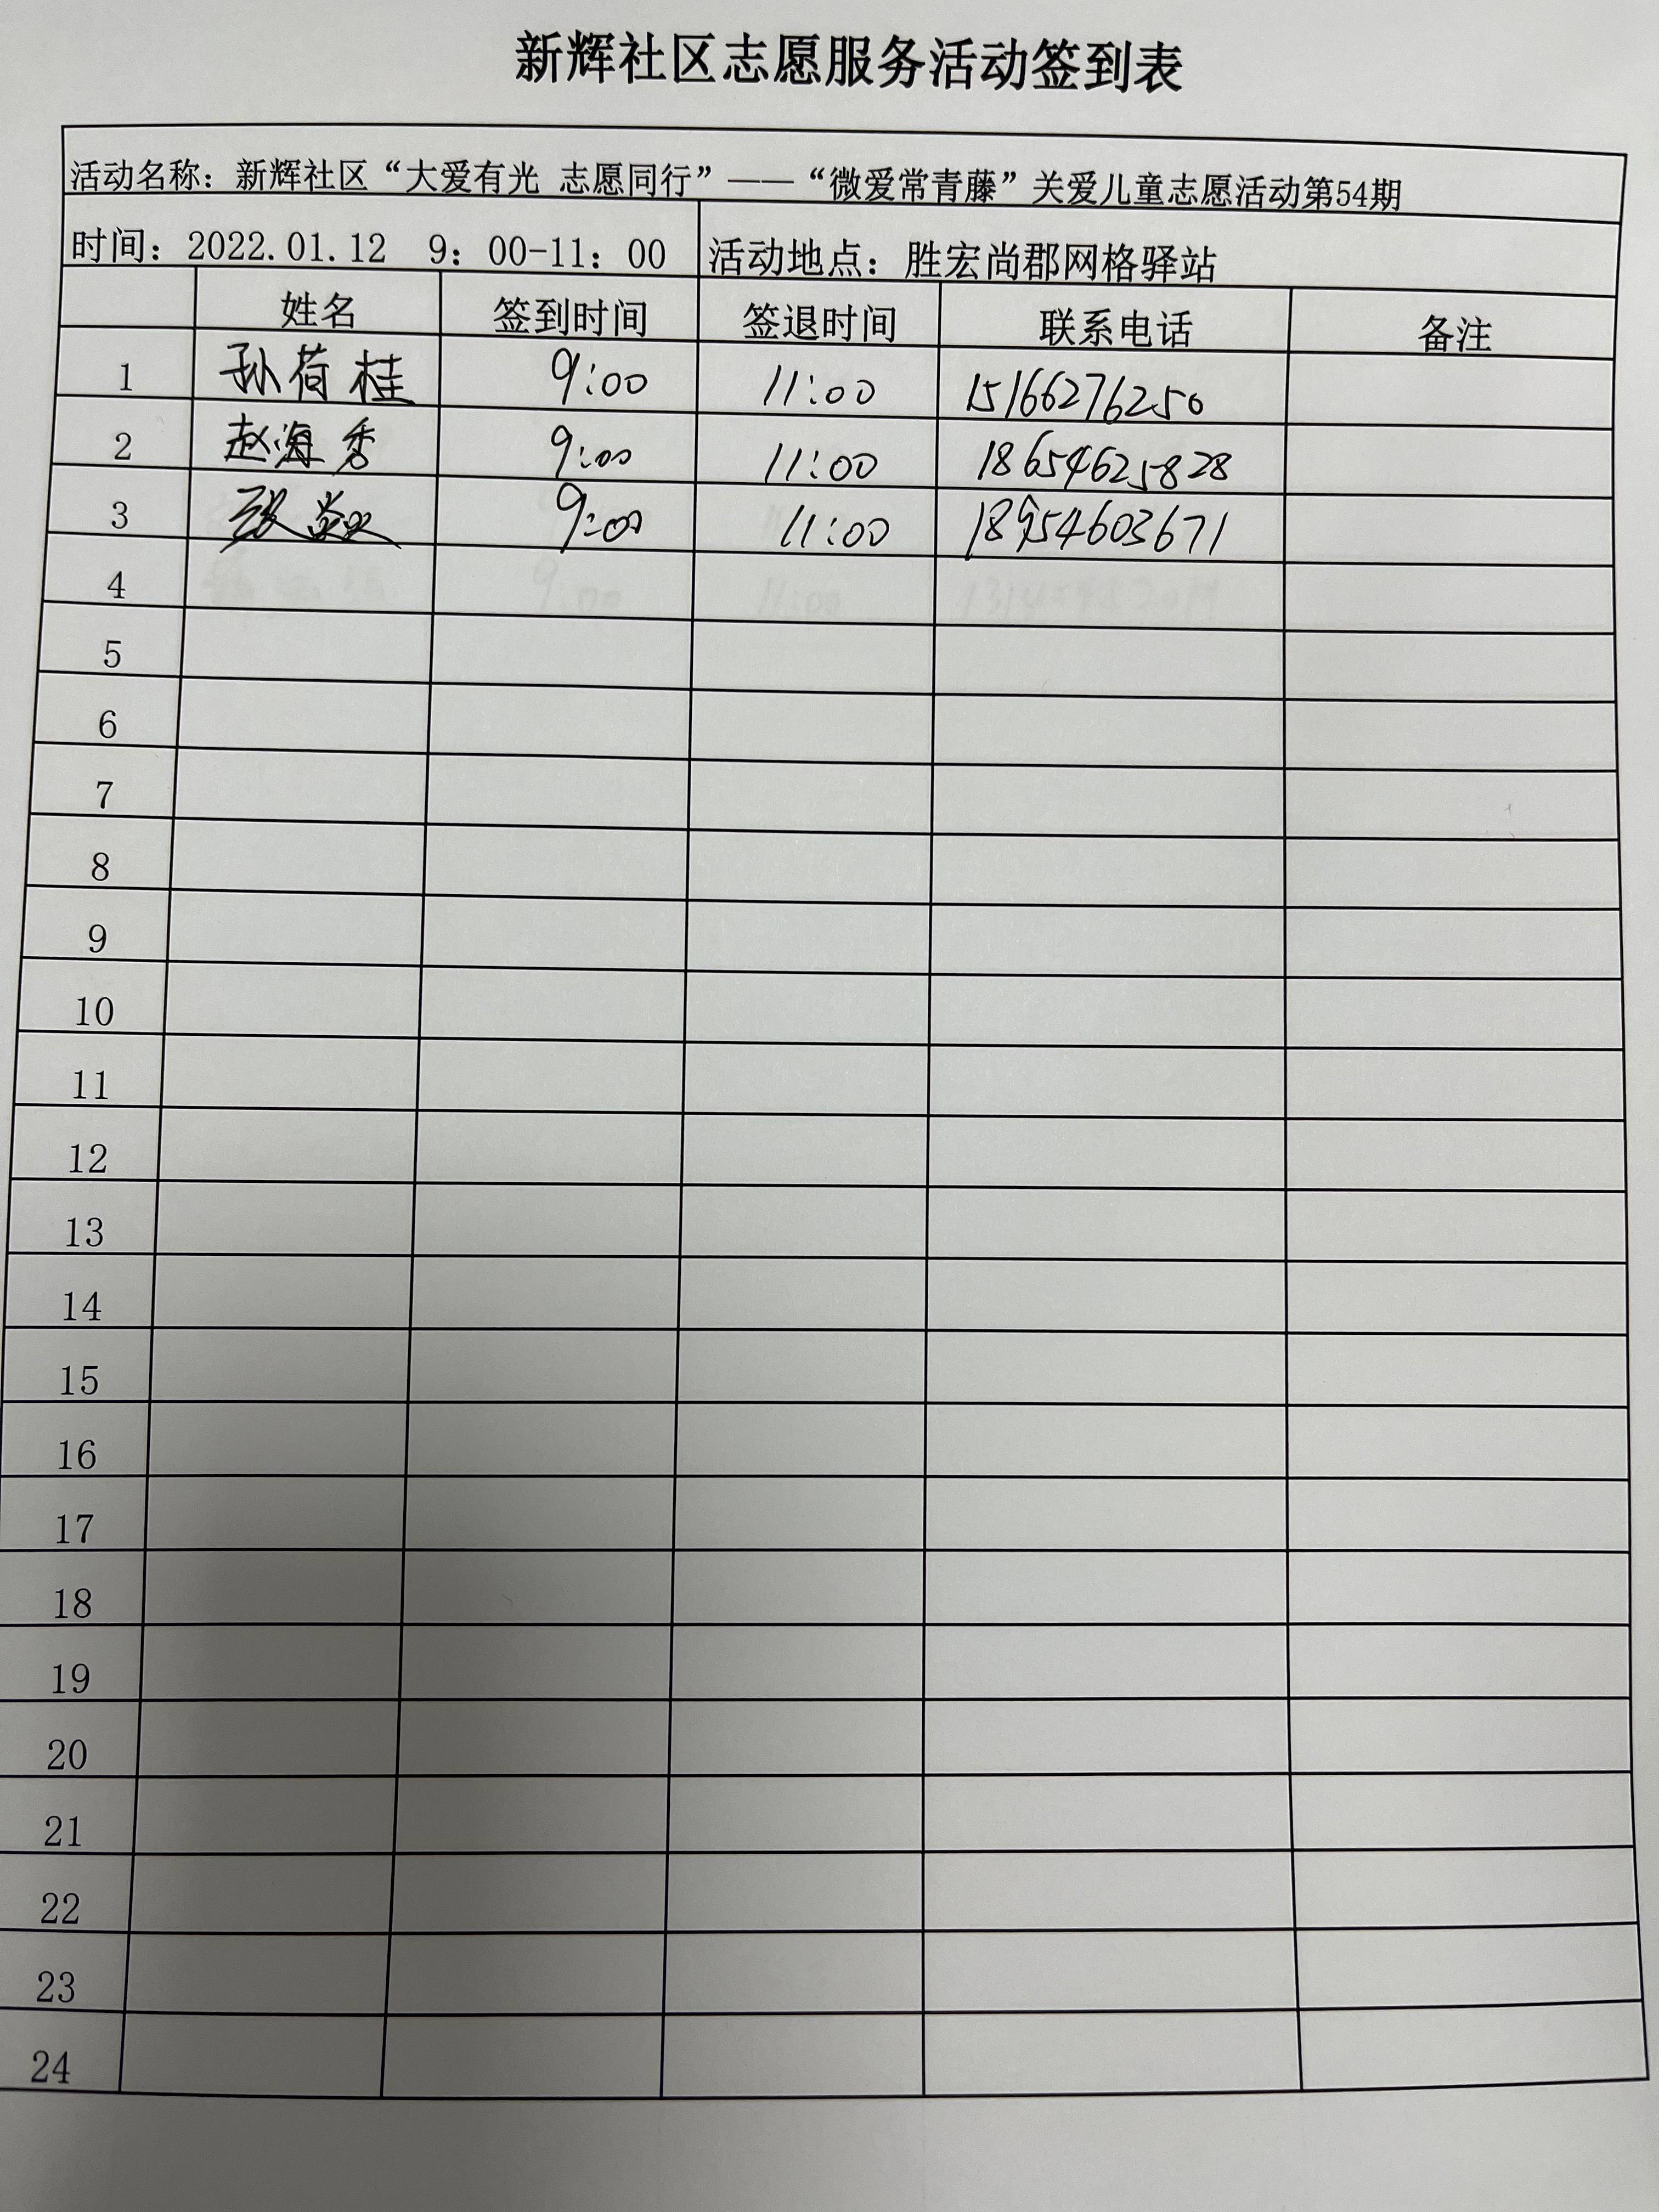 新辉社区志愿服务活动签到表
活动名称：新辉社区“大爱有光 志愿同行”——“微爱常青藤”关爱儿童志愿活动第54期
时间：2022.01.12 9：00-11：00 活动地点：胜宏尚郡网格驿站
姓名 签到时间 签退时间 联系电话 备注
1 孙荷桂 9:00 11:00 15166276250
2 赵海秀 9:00 11:00 18654625828
3 张焱 9:00 11:00 18954603671
4
5
6
7
8
9
10
11
12
13
14
15
16
17
18
19
20
21
22
23
24